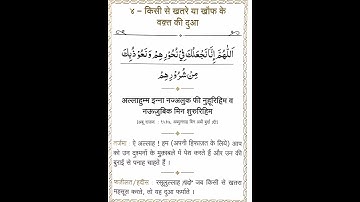 ४ – किसी से खतरे या खौफ के
वक़्त की दुआ
اَللّٰهُمَّ اِنَّا نَجْعَلُكَ فِيْ نُحُوْرِهِمْ وَنَعُوْذُ بِكَ
مِنْ شُرُوْرِهِمْ
अल्लाहुम्म इन्ना नज्अलुक फी नुहूरिहिम व
नऊज़ुबिक मिन शुरुरिहिम
तर्जमा: ऐ अल्लाह ! हम (अपनी हिफाज़त के लिये) आप
को उन दुश्मनों के मुक़ाबले में पेश करते हैं और उन की
बुराई से पनाह चाहते हैं ।
फज़ीलत/हदीस: रसूलुल्लाह जब किसी से खतरा
महसूस करते, तो यह दुआ फर्माते ।